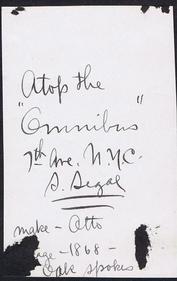 Atop the
"Omnibus"
7th Ave. N.Y.C.
S. Segal
make - Otto
age - 1868 -
Oak spokes